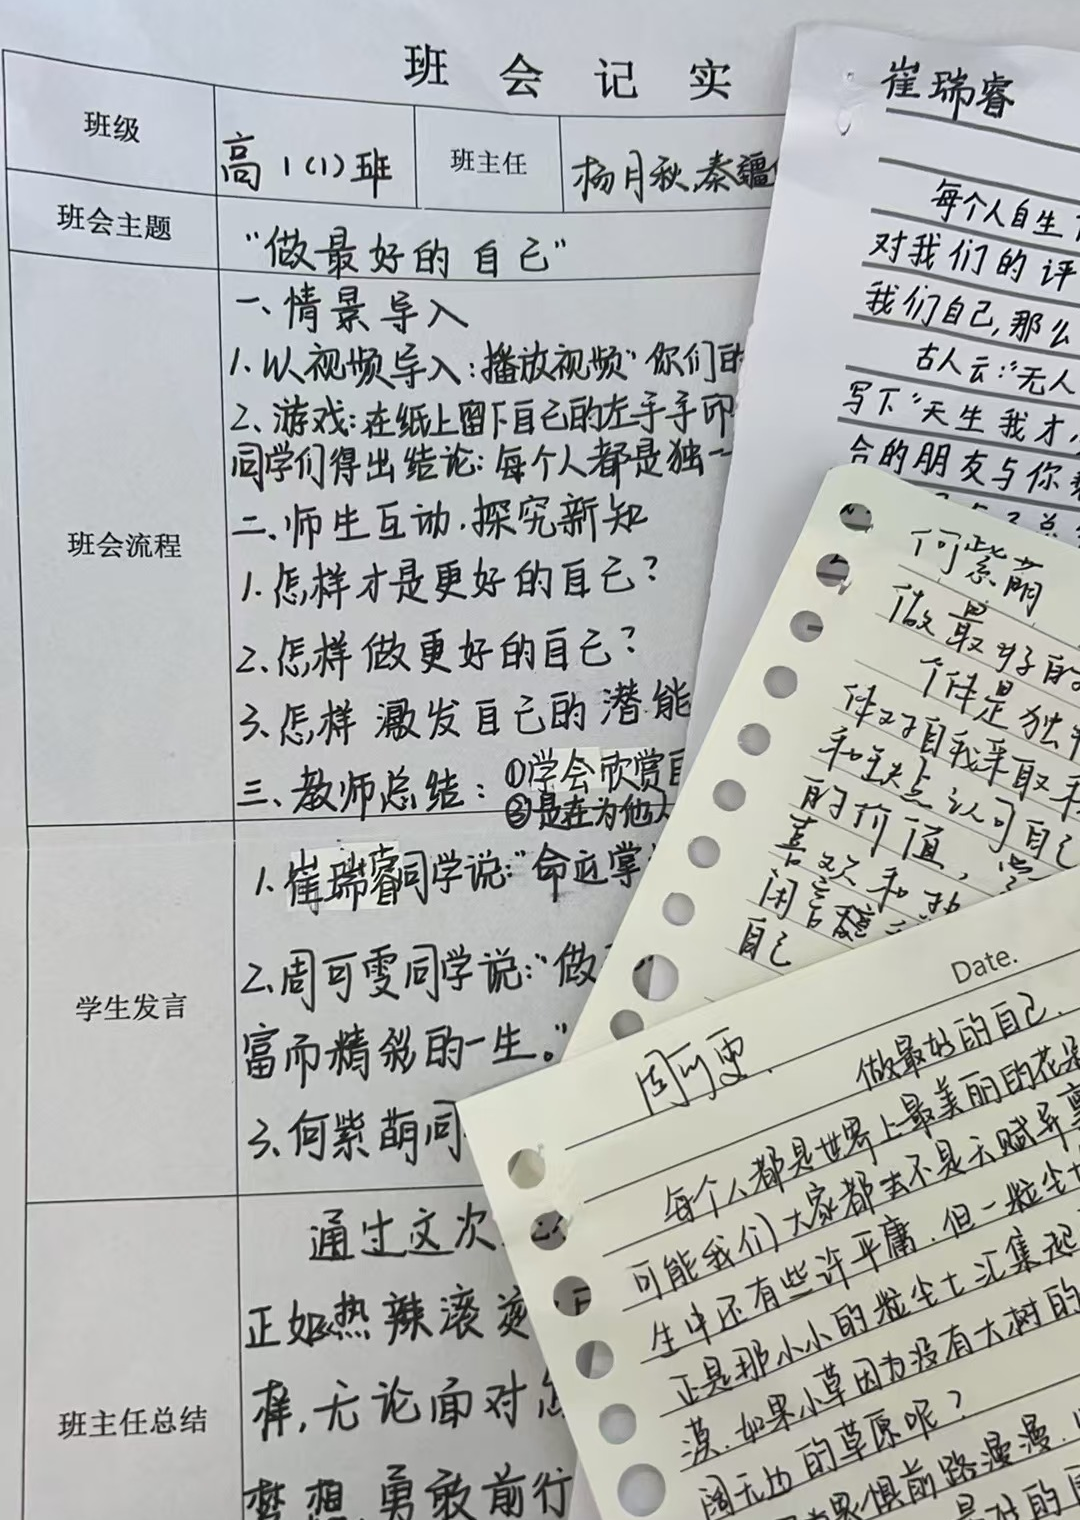 班会记实
班级
高1(1)班
班主任
杨月秋、秦疆
班会主题
"做最好的自己"
班会流程
一、情景导入
1.以视频导入:播放视频"你们的
2.游戏:在纸上留下自己的左手手印
同学们得出结论:每个人都是独一
二、师生互动,探究新知
1.怎样才是更好的自己?
2.怎样做更好的自己?
3.怎样激发自己的潜能
三、教师总结:①学会欣赏自
②是在为他人
学生发言
1.崔瑞睿同学说:"命运掌
2.周可雯同学说:"做
富而精彩的一生。"
3.何紫萌同
班主任总结
通过这次
正如热辣滚烫
样,无论面对
梦想,勇敢前行
崔瑞睿
每个人自生
对我们的评
我们自己,那么
古人云:"无人
写下"天生我才
合的朋友与你
何紫萌
做最好的
个体是独
体对自我采取
和缺点认可自己
的价值,
喜欢和
闲言
自己
Date.
周可雯.
做最好的自己.
每个人都是世界上最美丽的花朵
可能我们大家都去不是天赋异禀
生中还有些许平庸.但一粒尘土
正是那小小的粒尘土汇集起
漠.如果小草因为没有大树的
阔无边的草原呢?
惧前路漫漫.